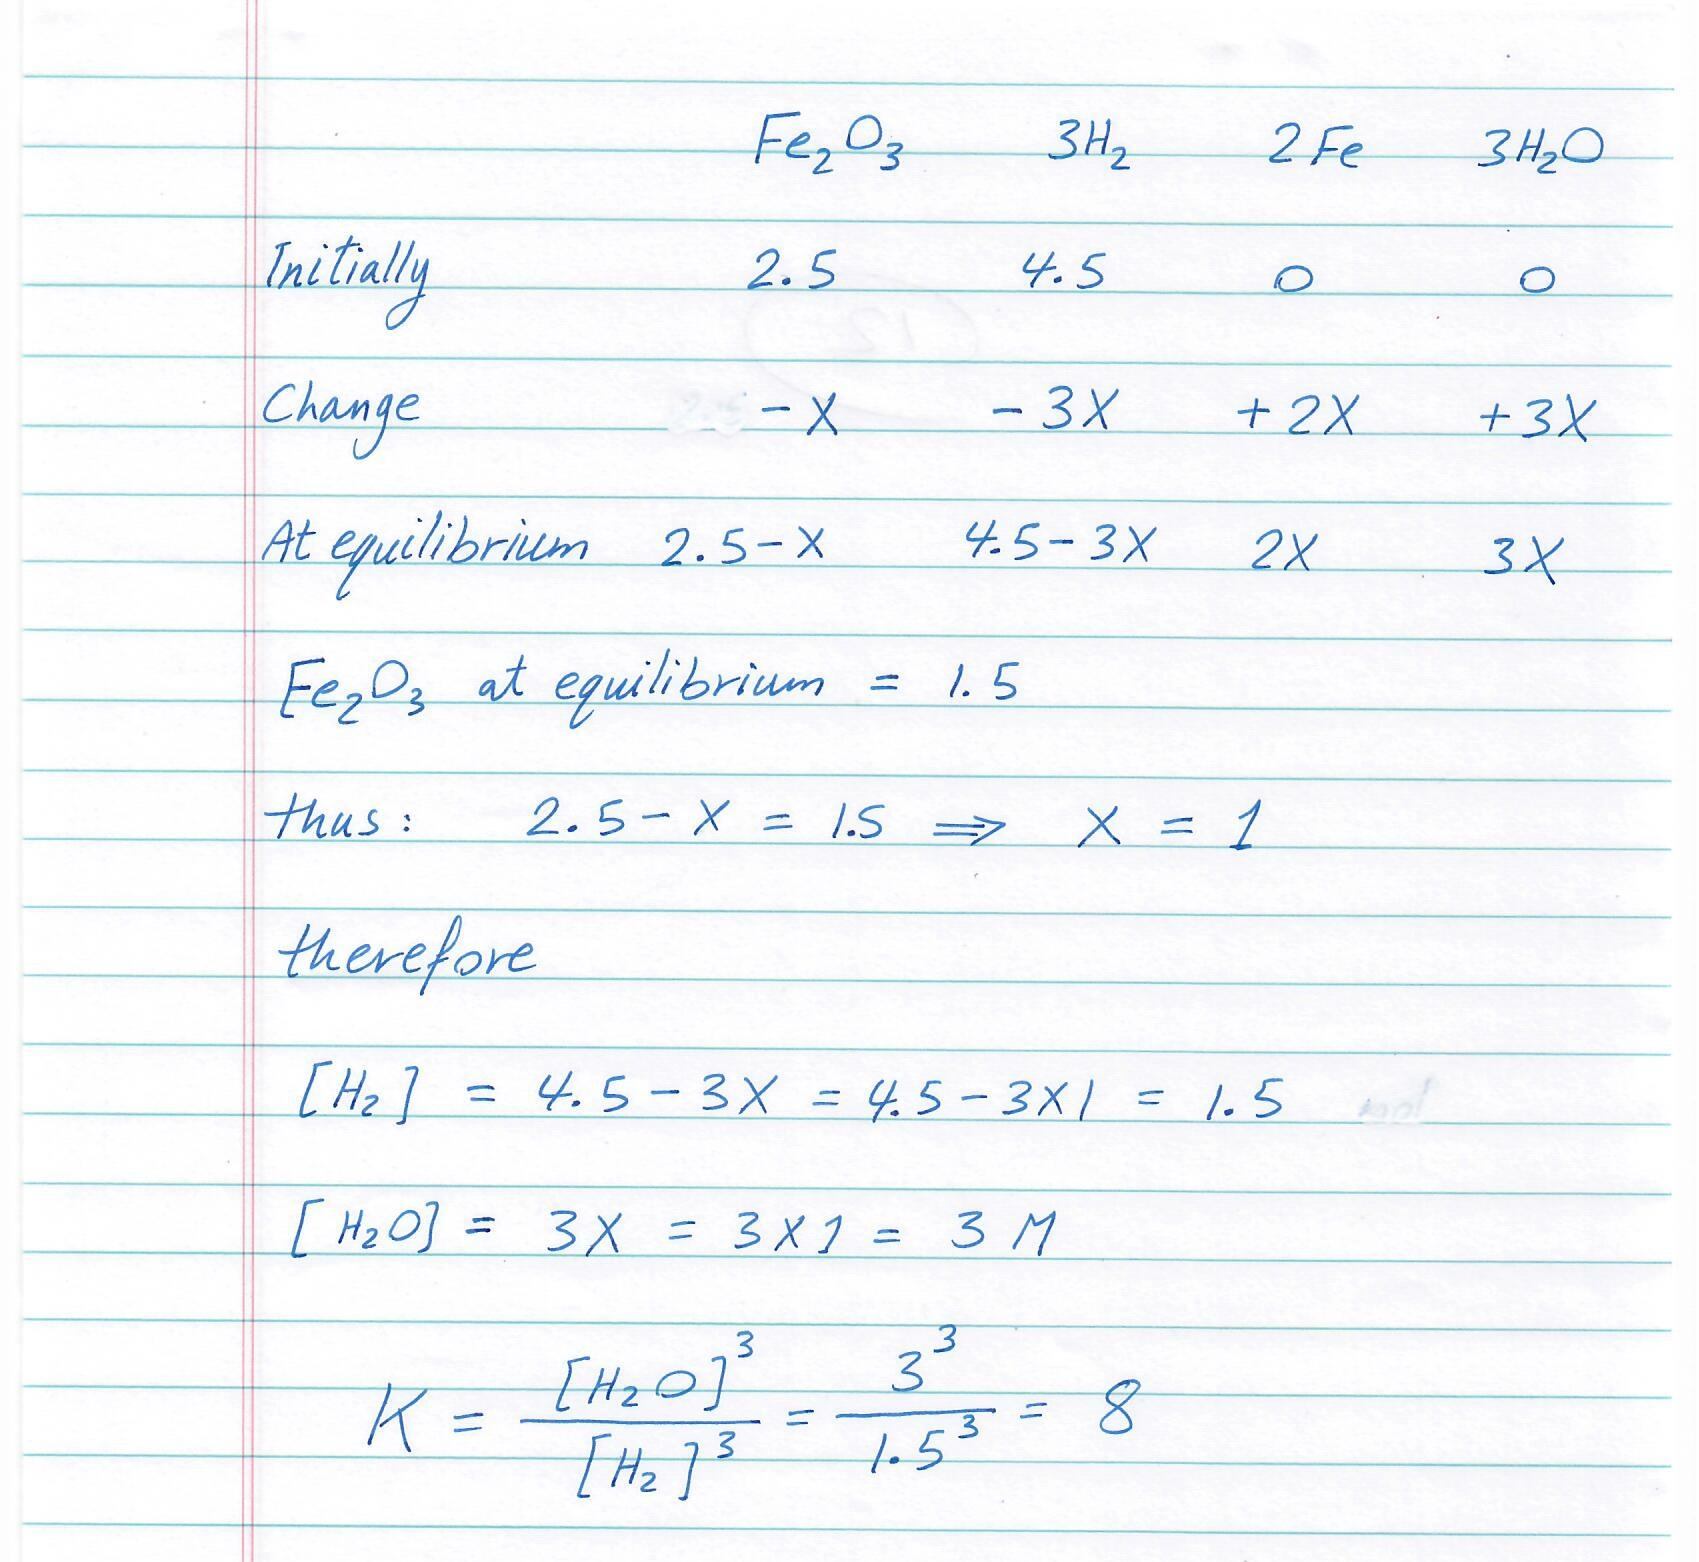 Fe₂O₃ 3H₂ 2Fe 3H₂O
Initially 2.5 4.5 0 0
Change -X -3X +2X +3X
At equilibrium 2.5-X 4.5-3X 2X 3X
Fe₂O₃ at equilibrium = 1.5
thus: 2.5-X = 1.5 ⇒ X = 1
therefore
[H₂] = 4.5-3X = 4.5-3X1 = 1.5
[H₂O] = 3X = 3X1 = 3 M
K = [H₂O]³ / [H₂]³ = 3³ / 1.5³ = 8